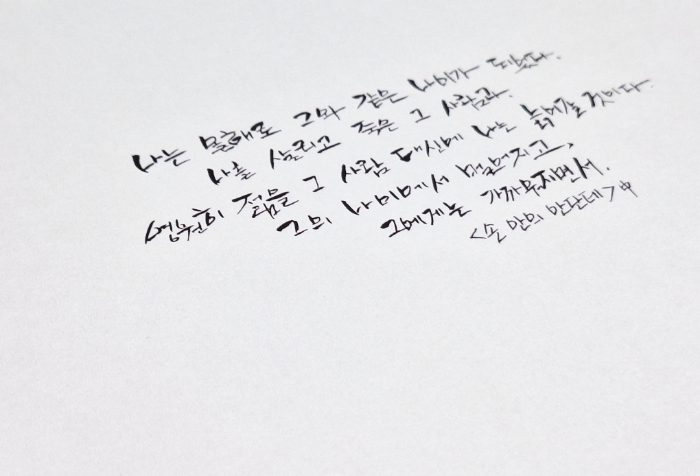 나는 올해로 그와 같은 나이가 되었다.
나를 살리고 죽은 그 사람과.
영원히 젊을 그 사람 대신에 나는 늙어갈 것이다.
그의 나이에서 멀어지고,
그에게는 가까워지면서.
<손 안의 안단테> 中